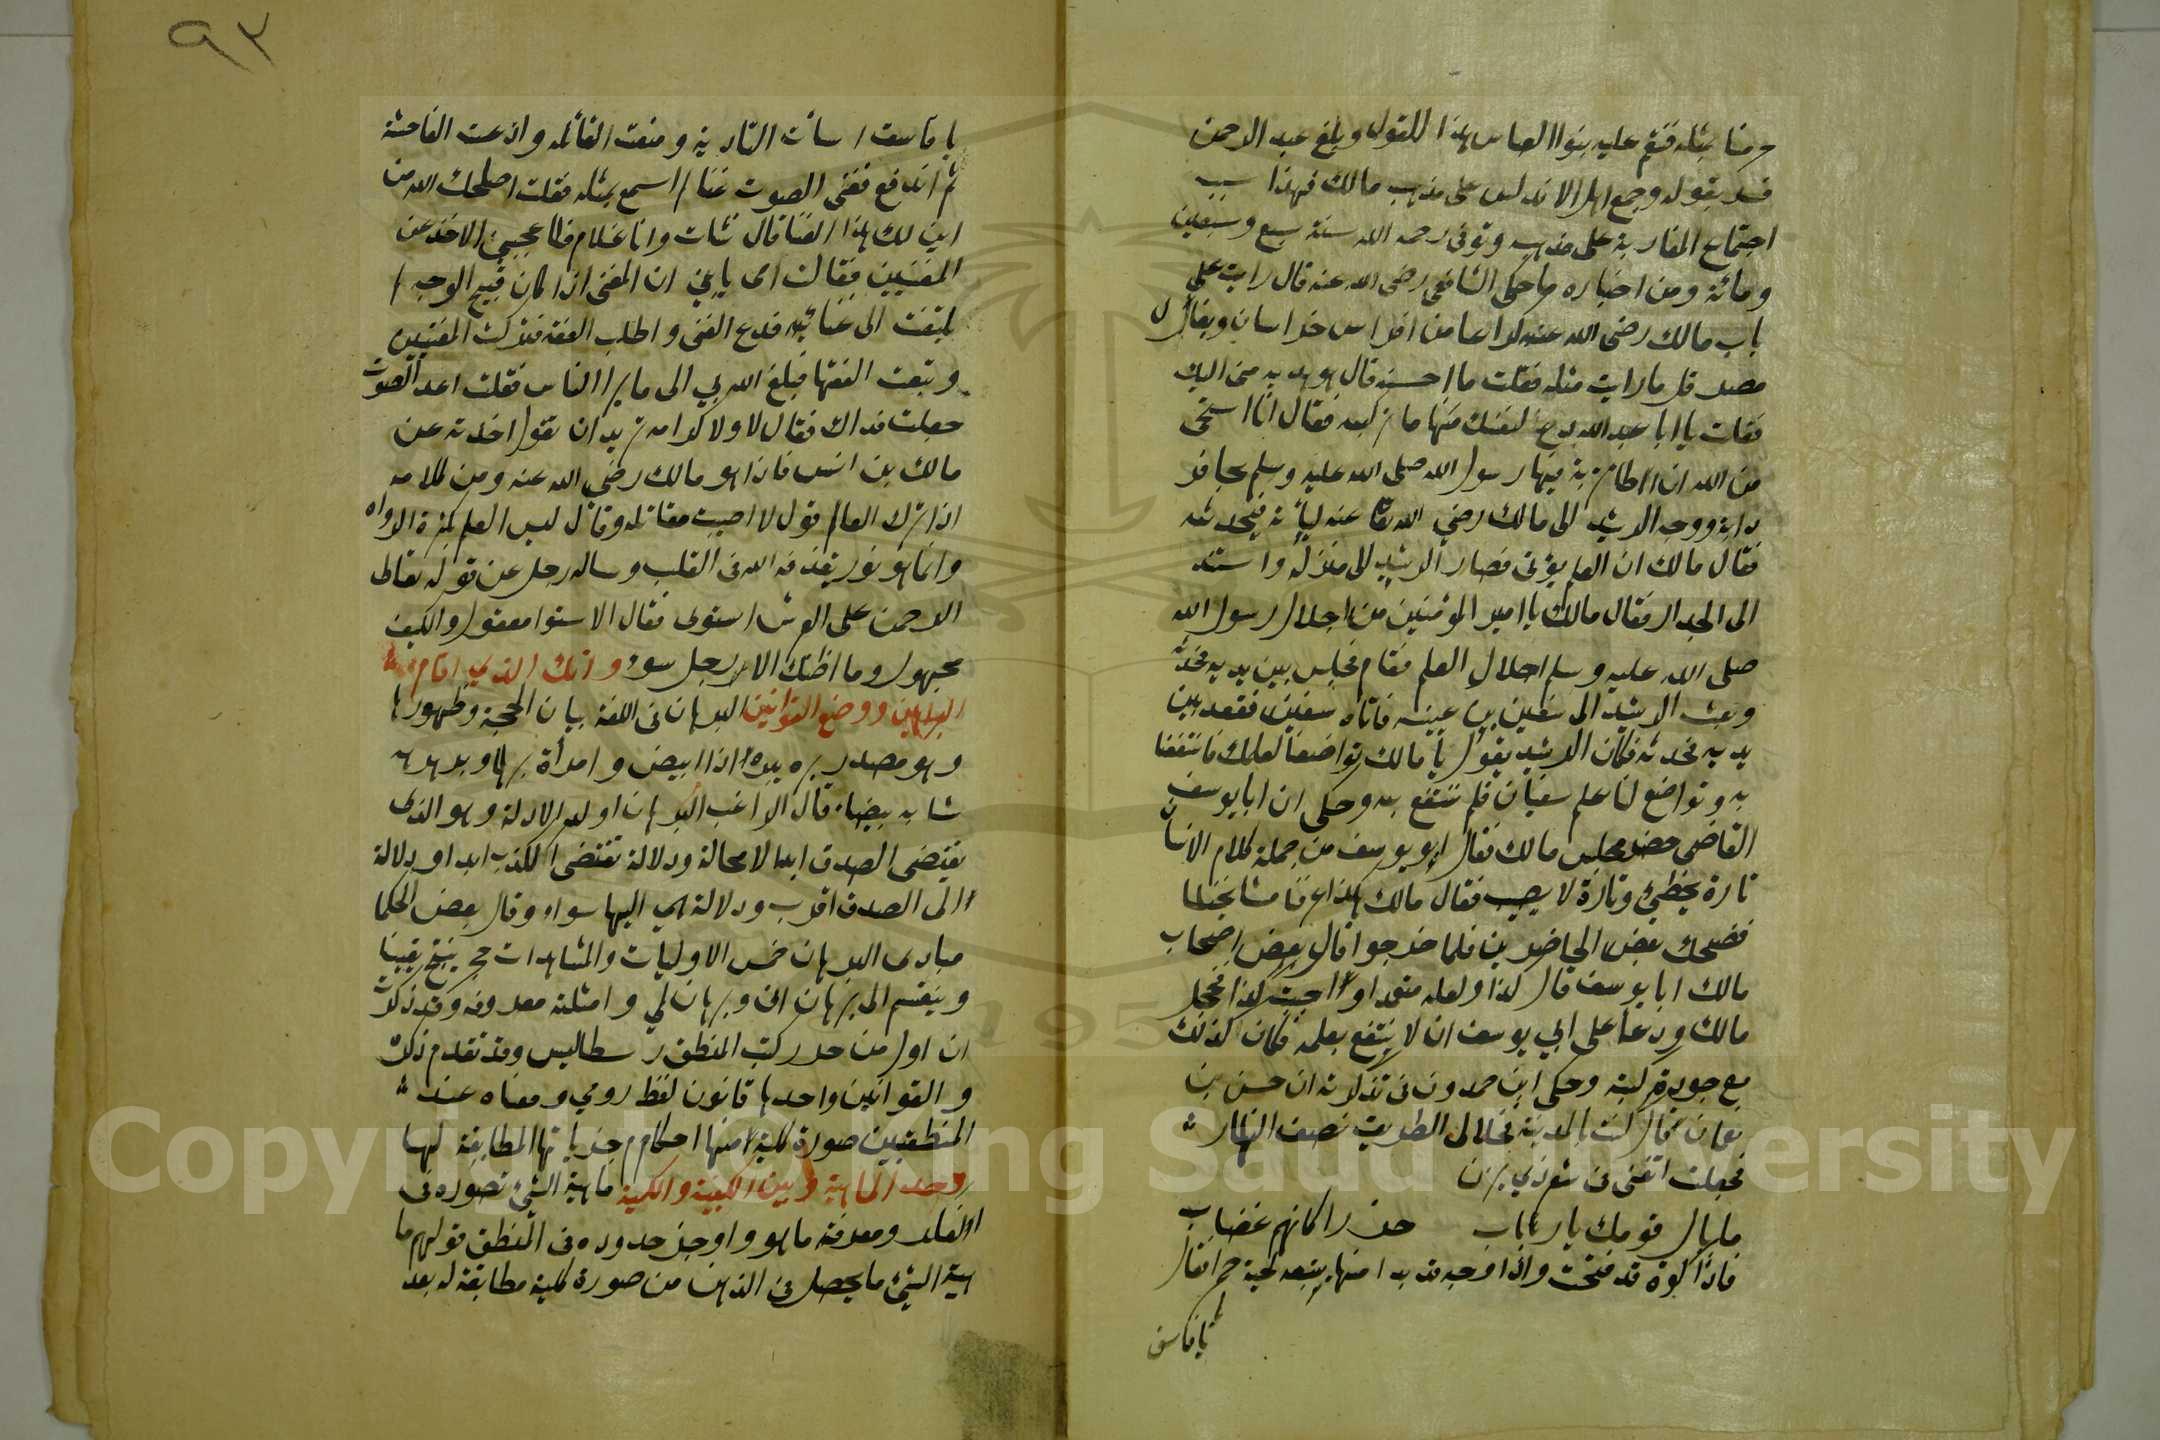 حرمنا بمثله فنقم عليه بنوا العباس هذا القول وبلغ عبد الرحمن
فسر بقوله وجمع اهل الاندلس على مذهب مالك فهذا سبب
اجتماع المغاربة على مذهبه وتوفى رحمه الله سنة سبع وسبعين
ومائة ومن اخباره ما حكى الشافعي رضى الله عنه قال رايت على
باب مالك رضى الله عنه كراعا من افراس خراسان وبغال
مصر قل ما رايت مثله فقلت ما احسنه قال هو هدية منى اليك
فقلت يا ابا عبد الله دع لنفسك منها ما تركبه فقال انا استحى
من الله ان اطا تربة فيها رسول الله صلى الله عليه وسلم بحافر
دابة ووجه الرشيد الى مالك رضي الله تعا عنه لياتيه فيحدثه
فقال مالك ان العلم يؤتى فصار الرشيد الى منزله واستند
الى الجدار فقال مالك يا امير المؤمنين من اجلال رسول الله
صلى الله عليه وسلم اجلال العلم فقام فجلس بين يديه فحدثه
وبعث الرشيد الى سفين بن عيينه فاتاه سفين فقعد بين
يديه فحدثه فكان الرشيد يقول يا مالك تواضعنا لعلمك فانتفعنا
به وتواضع لنا علم سفيان فلم ننتفع به وحكى ان ابا يوسف
القاضى حضر مجلس مالك فقال ابو يوسف من جملة كلام الانسان
تارة يخطئ وتارة لا يصيب فقال مالك هكذا عرفنا مشايخنا
فضحك بعض الحاضرين فلما خرجوا قال بعض اصحاب
مالك ابا يوسف قال كذا ولعله متعمدا واجبت كذا فخجل
مالك ودعا على ابي يوسف ان لا ينتفع بعلمه فكان كذلك
مع جودة كتبه وحكى ابن حمدون في تذكرته ان حسن بن
نعمان قال كنت بالمدينة فخلالى الطريق نصف النهار
فجعلت اتغنى فى شعر ذي يزن
ما بال قومك يا رباب حزرا كانهم غضاب
فاذا كوة قد فتحت واذا وجه قد بدا منها يتبعه لحية حمرا فقال
يا فاسق
٩٣
يا فاسق اسأت التادية ومنعت القائلة واذعت الفاحشة
ثم اندفع فغنى الصوت غنا لم اسمع بمثله فقلت اصلحك الله من
اين لك هذا الغنا قال نشات وانا غلام فاعجبني الاخذ عن
المغنيين فقالت امى يا بني ان المغنى اذا كان قبيح الوجه لم
يلتفت الى غنائه فدع الغنى واطلب الفقه فتركت المغنيين
وتبعت الفقها فبلغ الله بي الى ما يرا الناس فقلت اعد الصوت
جعلت فداك فقال لا ولا كرامه تريد ان تقول اخذته عن
مالك بن انس فاذا هو مالك رضي الله عنه ومن كلامه
اذا ترك العالم قول لا اصيبت مقاتله وقال ليس العلم بكثرة الرواه
وانما هو نور يقذفه الله فى القلب وساله رجل عن قوله تعالى
الرحمن على العرش استوى فقال الاستوا معقول والكيف
مجهول وما اظنك الا رجل سوء وانك الذي اقام
البراهين ووضع القوانين البرهان فى اللغة بيان الحجة وظهورها
وهو مصدر بره يبره اذا ابيض وامرأة برها وبرهرهه
شابه بيضاء قال الراغب البرهان اوكد الادلة وهو الذى
يقتضى الصدق ابدا لا محالة ودلالة تقتضى الكذب ابدا ودلالة
الى الصدق اقرب ودلالة هي اليها سواء وقال بعض الحكما
مبادى البرهان خمس الاوليات والمشاهدات حج ينتج يقينا
وينقسم الى برهان انى وبرهان لمي وامثلته معروفه وقد ذكرت
ان اول من حرر كتب المنطق رسطاليس وقد تقدم ذكره
والقوانين واحدها قانون لفظ رومي ومعناه عند
المنطقيين صورة كلية منها احكام جزياتها المطابقة لها
وحد الماهية وبين الكيفية والكمية ماهية الشئ تصوره فى
العقل ومعرفة ما هو واوجز حدوده فى المنطق قولهم ما
هية الشئ ما يحصل فى الذهن من صورة كلية مطابقة له بعد
Copyright © King Saud University
195